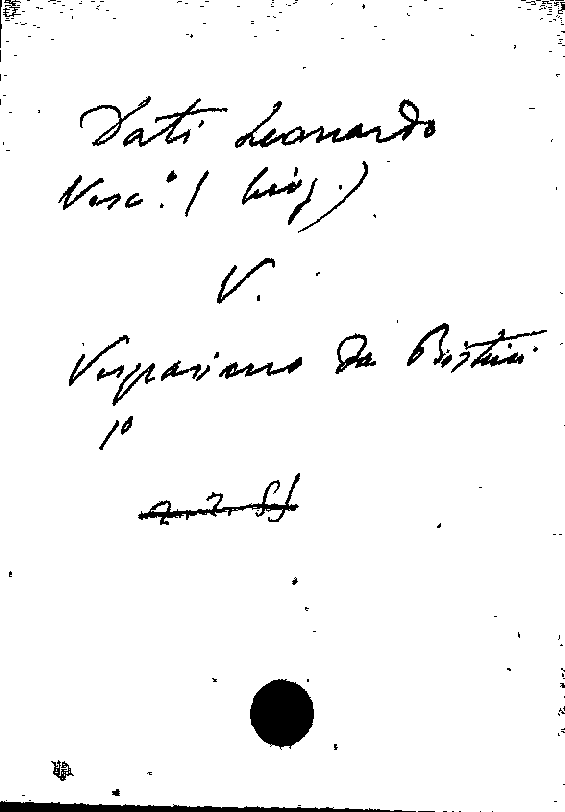 Dati Leonardo
Vesc.º (biog.)
V.
Vespasiano da Bisticci
1º